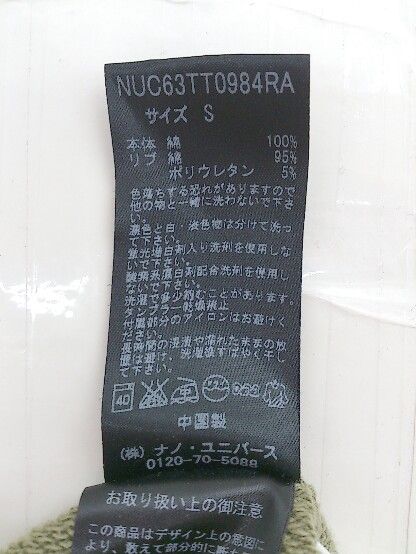 NUC63TT0984RA
サイズ S
本体 綿 100%
リブ 綿 95%
ポリウレタン 5%
色落ちする恐れがありますので
他の物と一緒に洗わないで下さ
い。
濃色と白・淡色物は分けて洗っ
て下さい。
蛍光増白剤入り洗剤を使用しな
いで下さい。
酸素系漂白剤配合洗剤を使用し
ないで下さい。
洗濯で多少縮むことがあります。
タンブラー乾燥禁止
付属部分のアイロンはお避けく
ださい。
長時間の浸漬や濡れたままの放
置は避け、洗濯後すばやく干し
て下さい。
40
中国製
(株) ナノ・ユニバース
0120-70-5088
お取り扱い上の御注意
この商品はデザイン上の意図に
より、敢えて部分的に